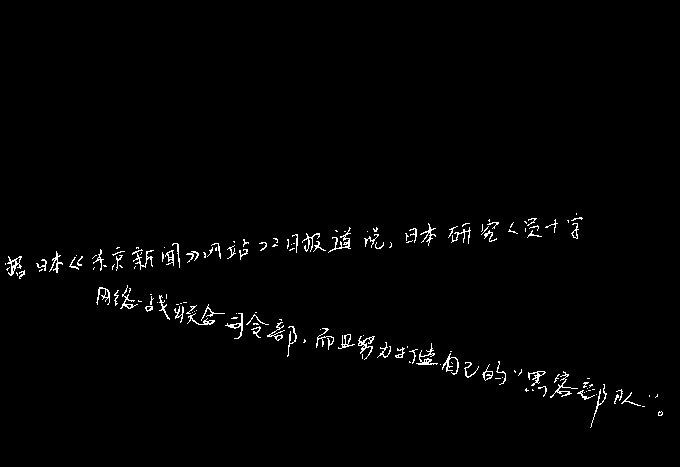 据日本《东京新闻》网站22日报道说,日本研究人员十字
网络战联合司令部,而且努力打造自己的“黑客部队”。